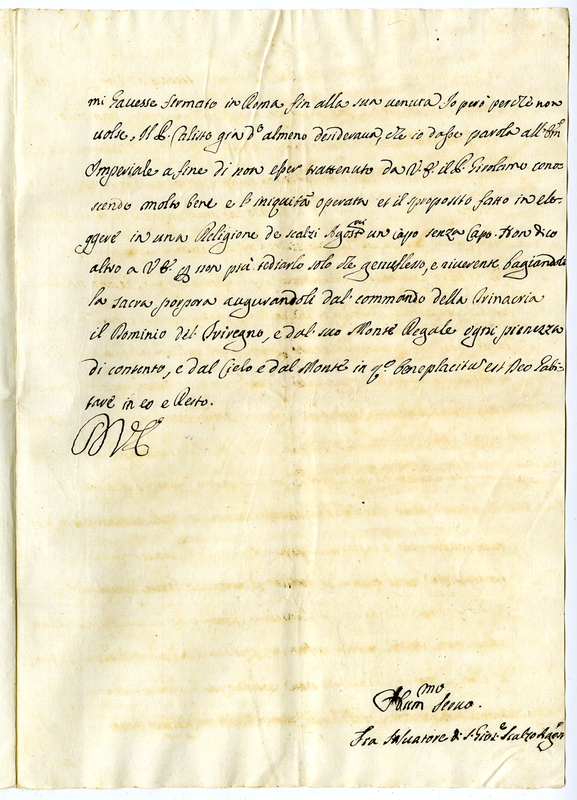 mi havesse fermato in Roma fin alla sua venuta Io però perche non
volse, Il P. Calisto gia d.º almeno desiderava, che io dasse parola all' Em.
Imperiale a fine di non esser trattenuto da V.E. il P. Girolamo cono-
scendo molto bene e l' iniquità operata et il sproposito fatto in ele-
ggere in una Religione de scalzi Agost.ni un Capo senza Capo. Non dico
altro a V.E. per non più tediarlo solo che genuflesso, e riverente bagiandole
la sacra porpora augurandole dal commando della Trinacria
il Dominio del Triregno, e dal suo Monte Regale ogni pienezza
di contento, e dal Cielo e dal Monte in q.º beneplacitu est Deo habi-
tare in eo e Resto.
D V E
Hum.mo Servo.
Fra Salvatore di S. Scalzo Agos.